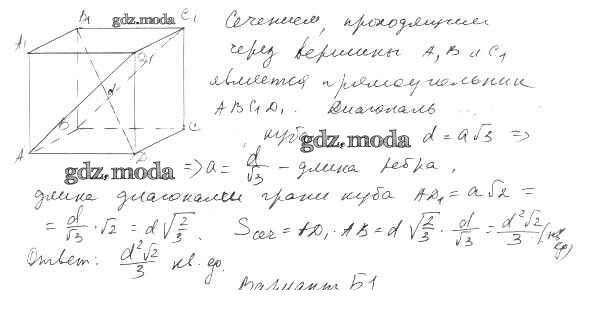 B₁ gdz.moda C₁
A₁ D₁
d
B C
A D
Сечением, проходящим
через вершины A, B и C₁
является прямоугольник
ABC₁D₁. Диагональ
куба gdz.moda d = a√3 =>
gdz.moda => a = d/√3 – длина ребра,
длина диагонали грани куба AD₁ = a√2 =
= d/√3 · √2 = d√(2/3). Sсеч = AD₁ · AB = d√(2/3) · d/√3 = d²√2/3 (кв. ед)
Ответ: d²√2/3 кв. ед.
Вариант Б1